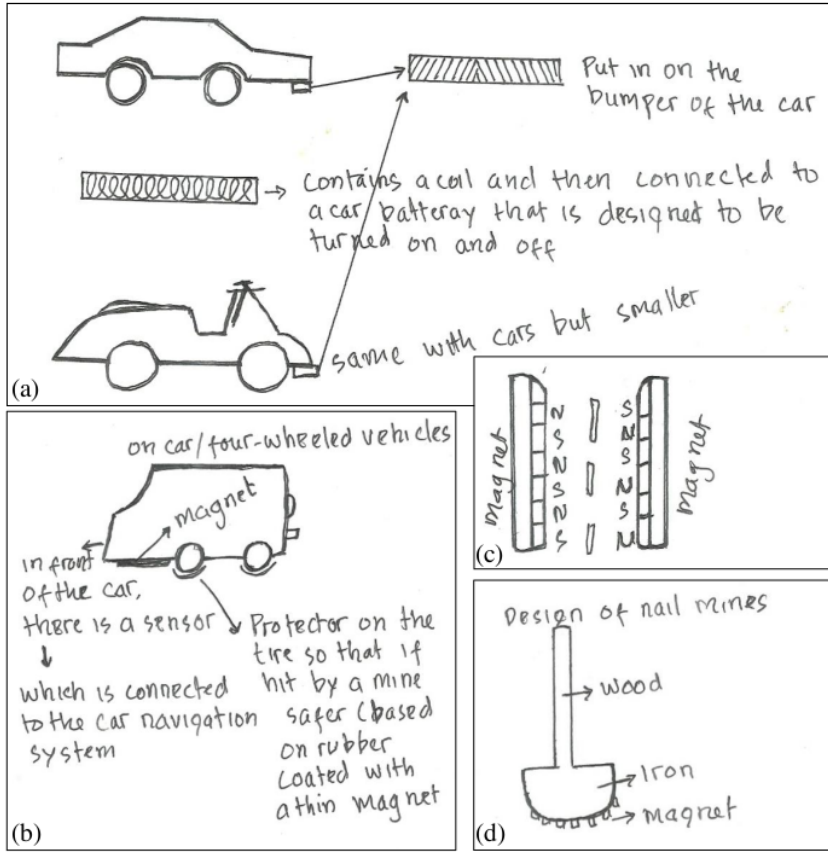 Put in on the
bumper of the car
contains a coil and then connected to
a car batteray that is designed to be
turned on and off
same with cars but smaller
(a)
on car/four-wheeled vehicles
magnet
in front
of the car,
there is a sensor
which is connected
to the car navigation
system
Protector on the
tire so that if
hit by a mine
safer (based
on rubber
coated with
a thin magnet
(b)
Magnet
N
S
N
S
N
S
S
N
S
N
S
N
Magnet
(c)
Design of nail mines
wood
Iron
Magnet
(d)